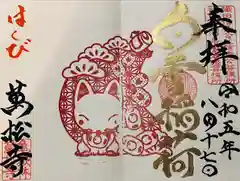 奉拝
令和五年
八月十七日
白雪稲荷
はくび
萬松寺